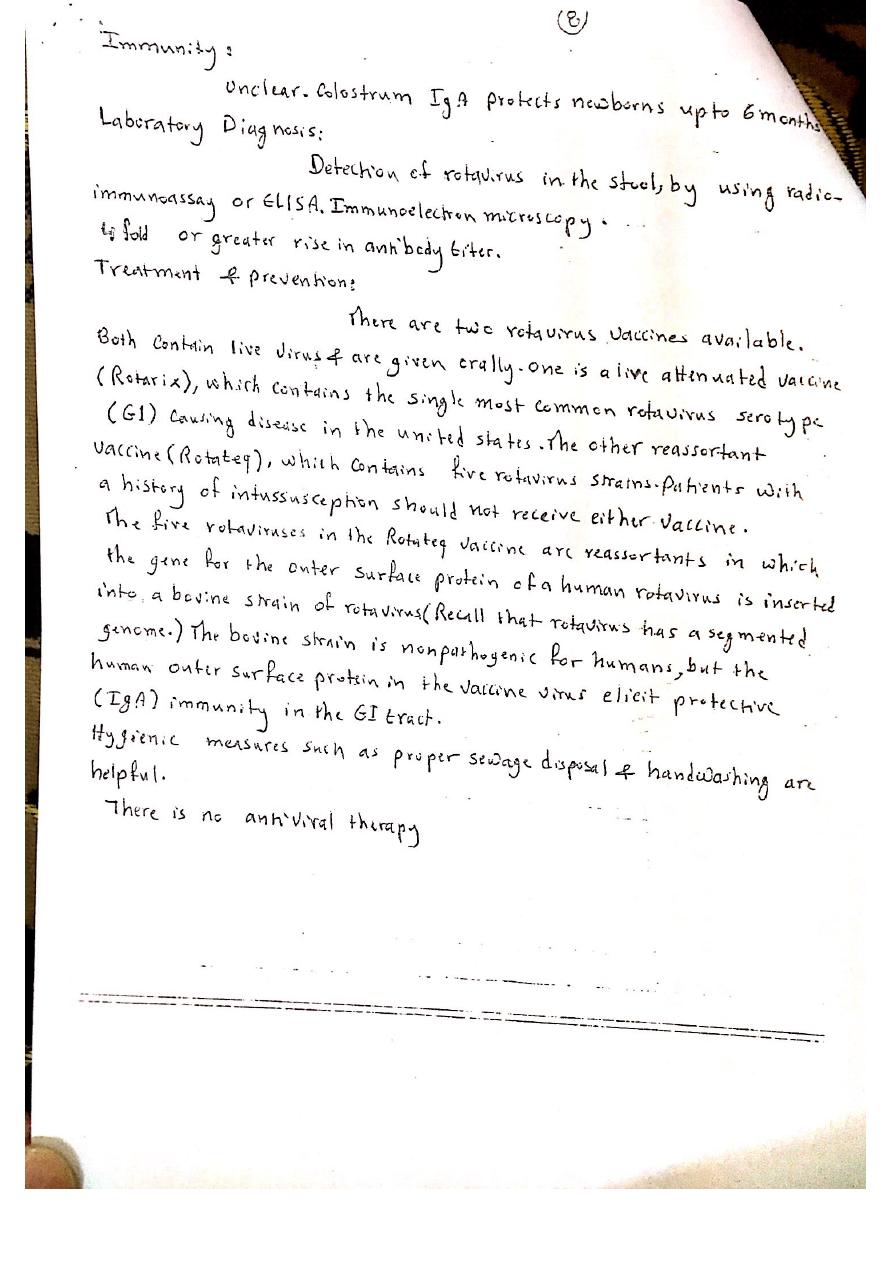 (8)
Immunity:
Unclear. Colostrum IgA protects newborns upto 6 months
Laboratory Diagnosis:
Detection of rotavirus in the stool, by using radio-
immunoassay or ELISA. Immunoelectron microscopy.
4 fold or greater rise in antibody titer.
Treatment & prevention:
There are two rotavirus vaccines available.
Both contain live virus & are given orally. one is a live attenuated vaccine
(Rotarix), which contains the single most common rotavirus serotype
(G1) causing disease in the united states. The other reassortant
vaccine (Rotateq), which contains five rotavirus strains. Patients with
a history of intussusception should not receive either vaccine.
The five rotaviruses in the Rotateq vaccine are reassortants in which
the gene for the outer surface protein of a human rotavirus is inserted
into a bovine strain of rotavirus (Recall that rotavirus has a segmented
genome.) The bovine strain is nonpathogenic for humans, but the
human outer surface protein in the vaccine virus elicit protective
(IgA) immunity in the GI tract.
Hygienic measures such as proper sewage disposal & handwashing are
helpful.
There is no antiviral therapy